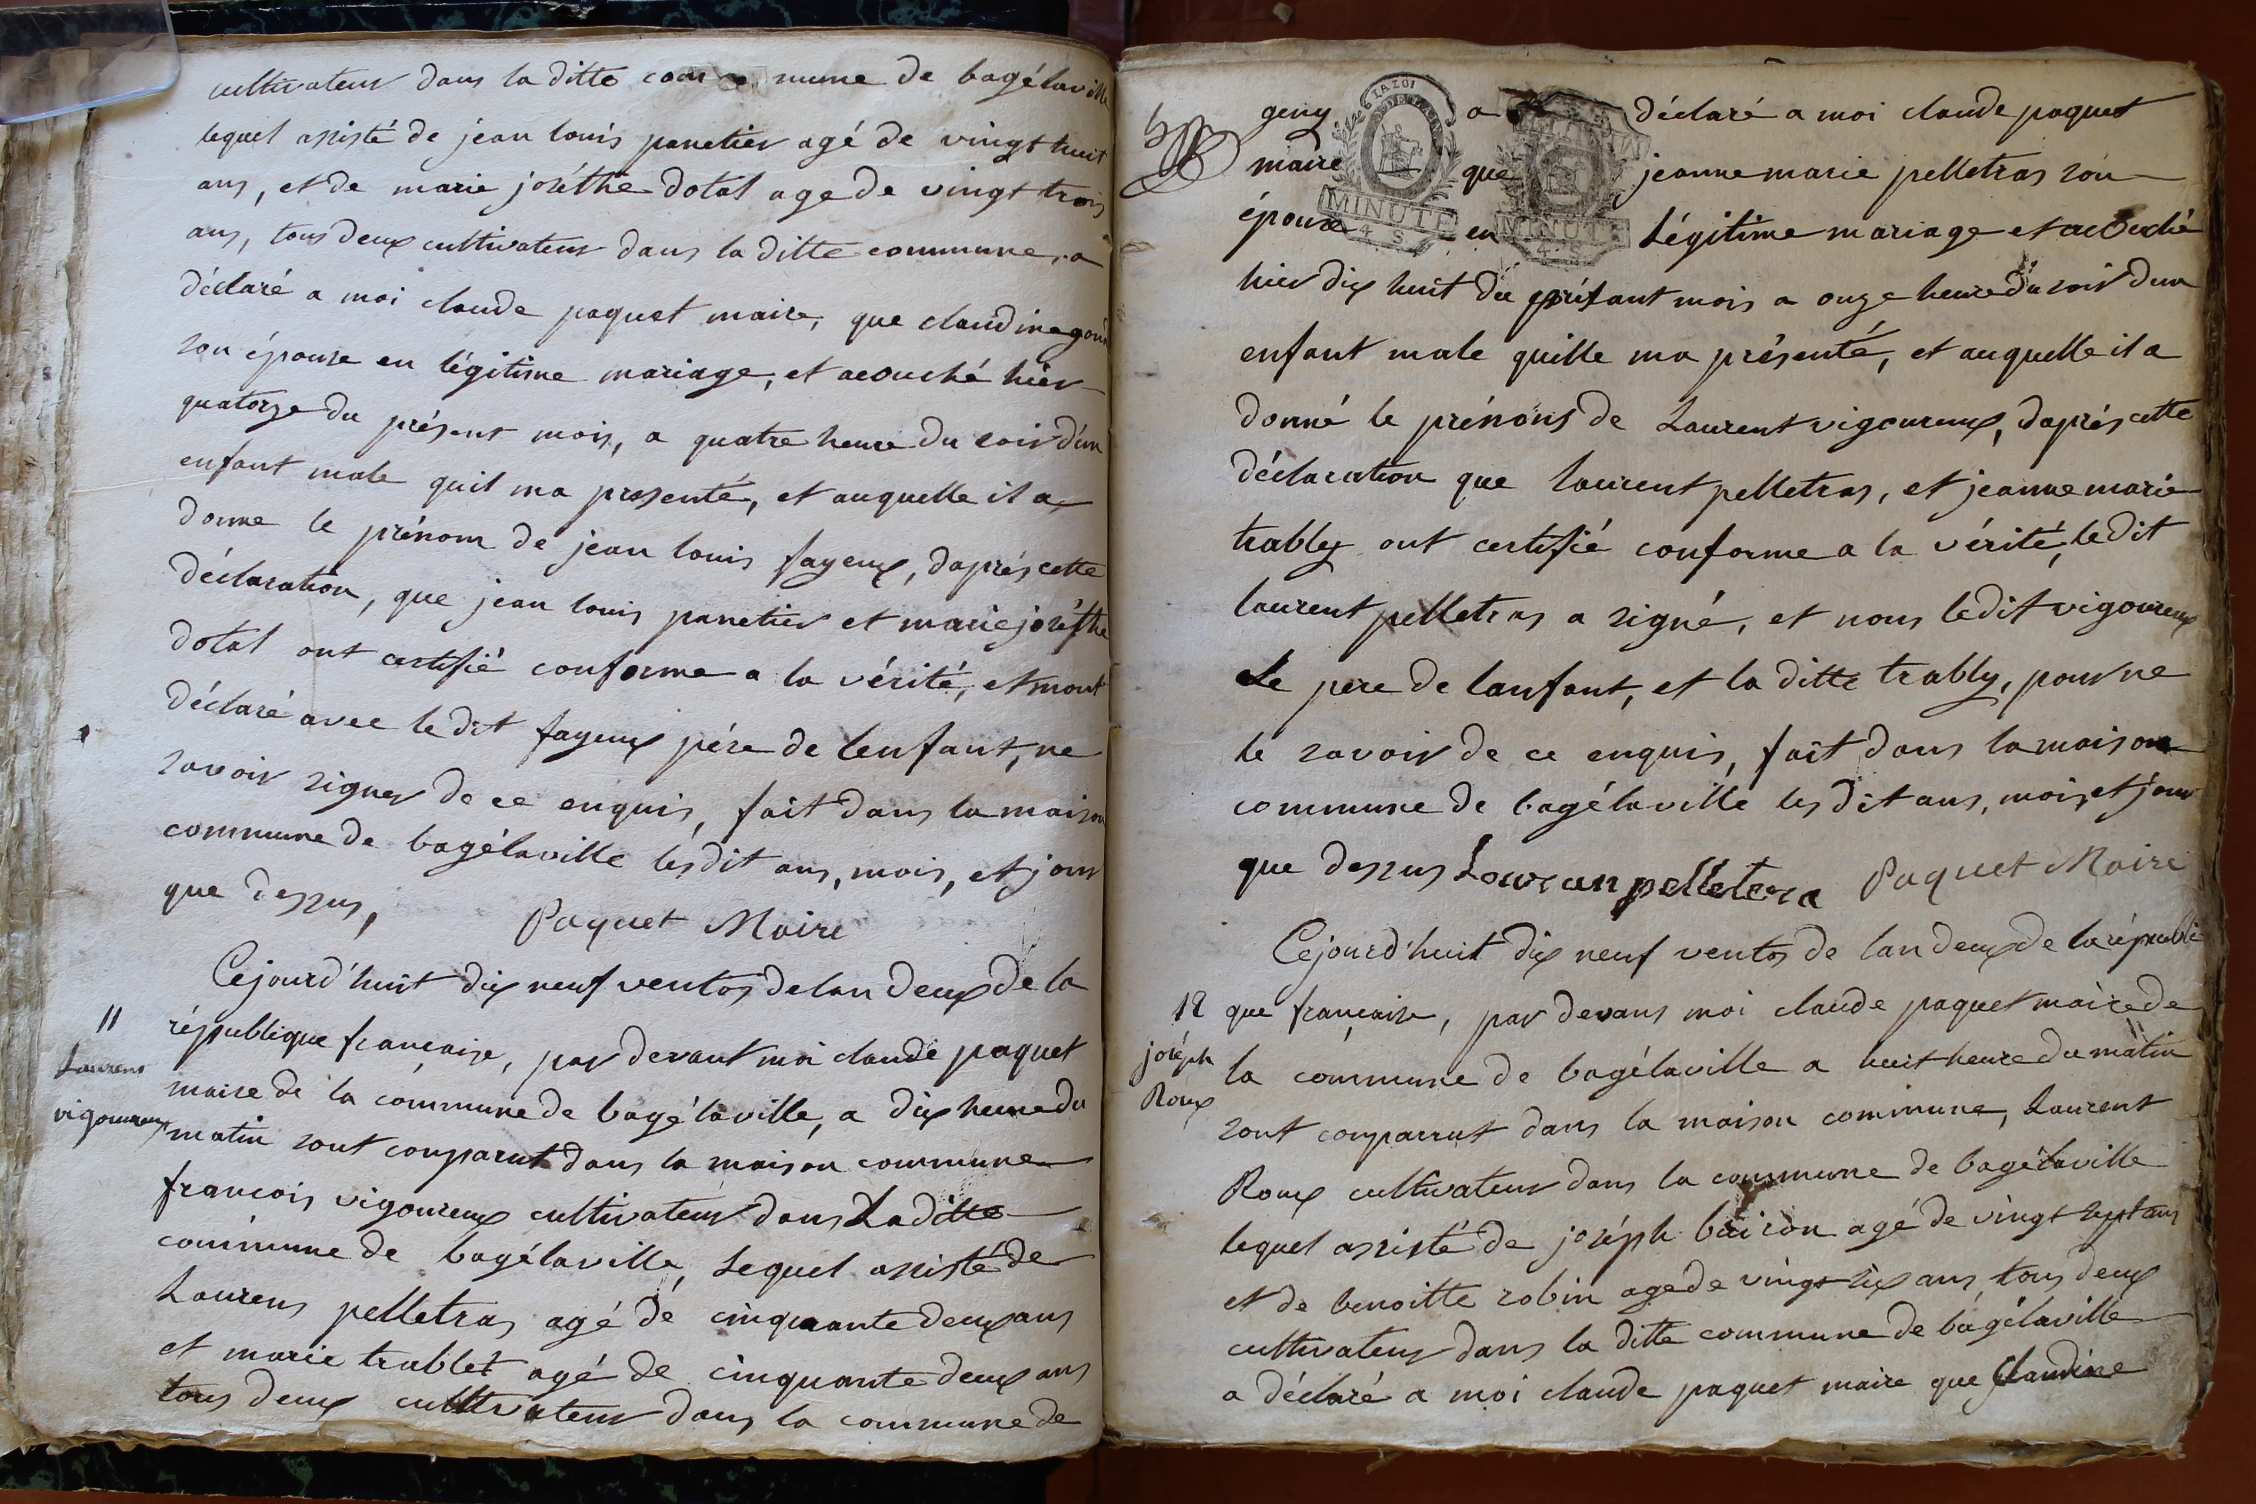 cultivateur dans la ditte com mune de bagélaville
lequel assisté de jean louis panetier agé de vingt huit
ans, et de marie joséthe dotal age de vingt trois
ans, tous deux cultivateur dans la ditte commune, a
déclaré a moi claude paquet maire, que claudine
son épouse en légitime mariage, et acouché hier
quatorze du présent mois, a quatre heure du soir d'un
enfant male quil ma presenté, et auquelle il a
donne le prénom de jean louis fayeux, daprés cette
déclaration, que jean louis panetier et marie joséthe
dotal ont certifié conforme a la vérité, et mont
déclaré avec le dit fayeux pére de lenfant, ne
savoir signer de ce enquis, fait dans la maison
commune de bagélaville les dit ans, mois, et jour
que dessus, Paquet Maire
Cejourd'huit dix neuf ventos de lan deux de la
11
républiqque francaise, par devant moi claude paquet
Laurens
maire de la commune de bagélaville, a dix heure du
vigoureux
matin sont comparut dans la maison commune
francois vigoureux cultivateur dans Laditte
commune de bagélaville, Lequel assisté de
Laurens pelletras agé dé cinquante deux ans
et marie trablet agé de cinquante deux ans
tous deux cultivateur dans la commune de
geny a déclaré a moi claude paquet
maire que jeanne marie pelletras son
épouse en Légitime mariage et acouché
MINUTE
4 S
MINUTE
4 S
hier dix huit du présant mois a onze heure du soir dun
enfant male quille ma présenté, et auquelle il a
donné le prénons de Laurent vigoureux, daprés cette
déclaration que laurent pelletras, et jeanne marie
trably ont certifié conforme a la vérité, le dit
laurent pelletras a signé, et nous ledit vigoureux
Le pere de lanfant, et la ditte trably, pour ne
le savoir de ce enquis, fait dans la maison
commune de bagélaville les dit ans, mois, et jour
que dessus Louran pelletera Paquet Maire
Cejourd'huit dix neuf ventos de lan deux de la républi
12
que francaise, par devans moi claude paquet maire de
joséph
la commune de bagélaville a huit heure du matin
Roux
sont comparrut dans la maison commune, Laurent
Roux cultivateur dans la commune de bagélaville
lequel assisté de joséph buiron agé de vingt sept ans
et de benoitte robin age de vingt six ans, tous deux
cultivateur dans la ditte commune de bagélaville
a déclaré a moi claude paquet maire que Claudine